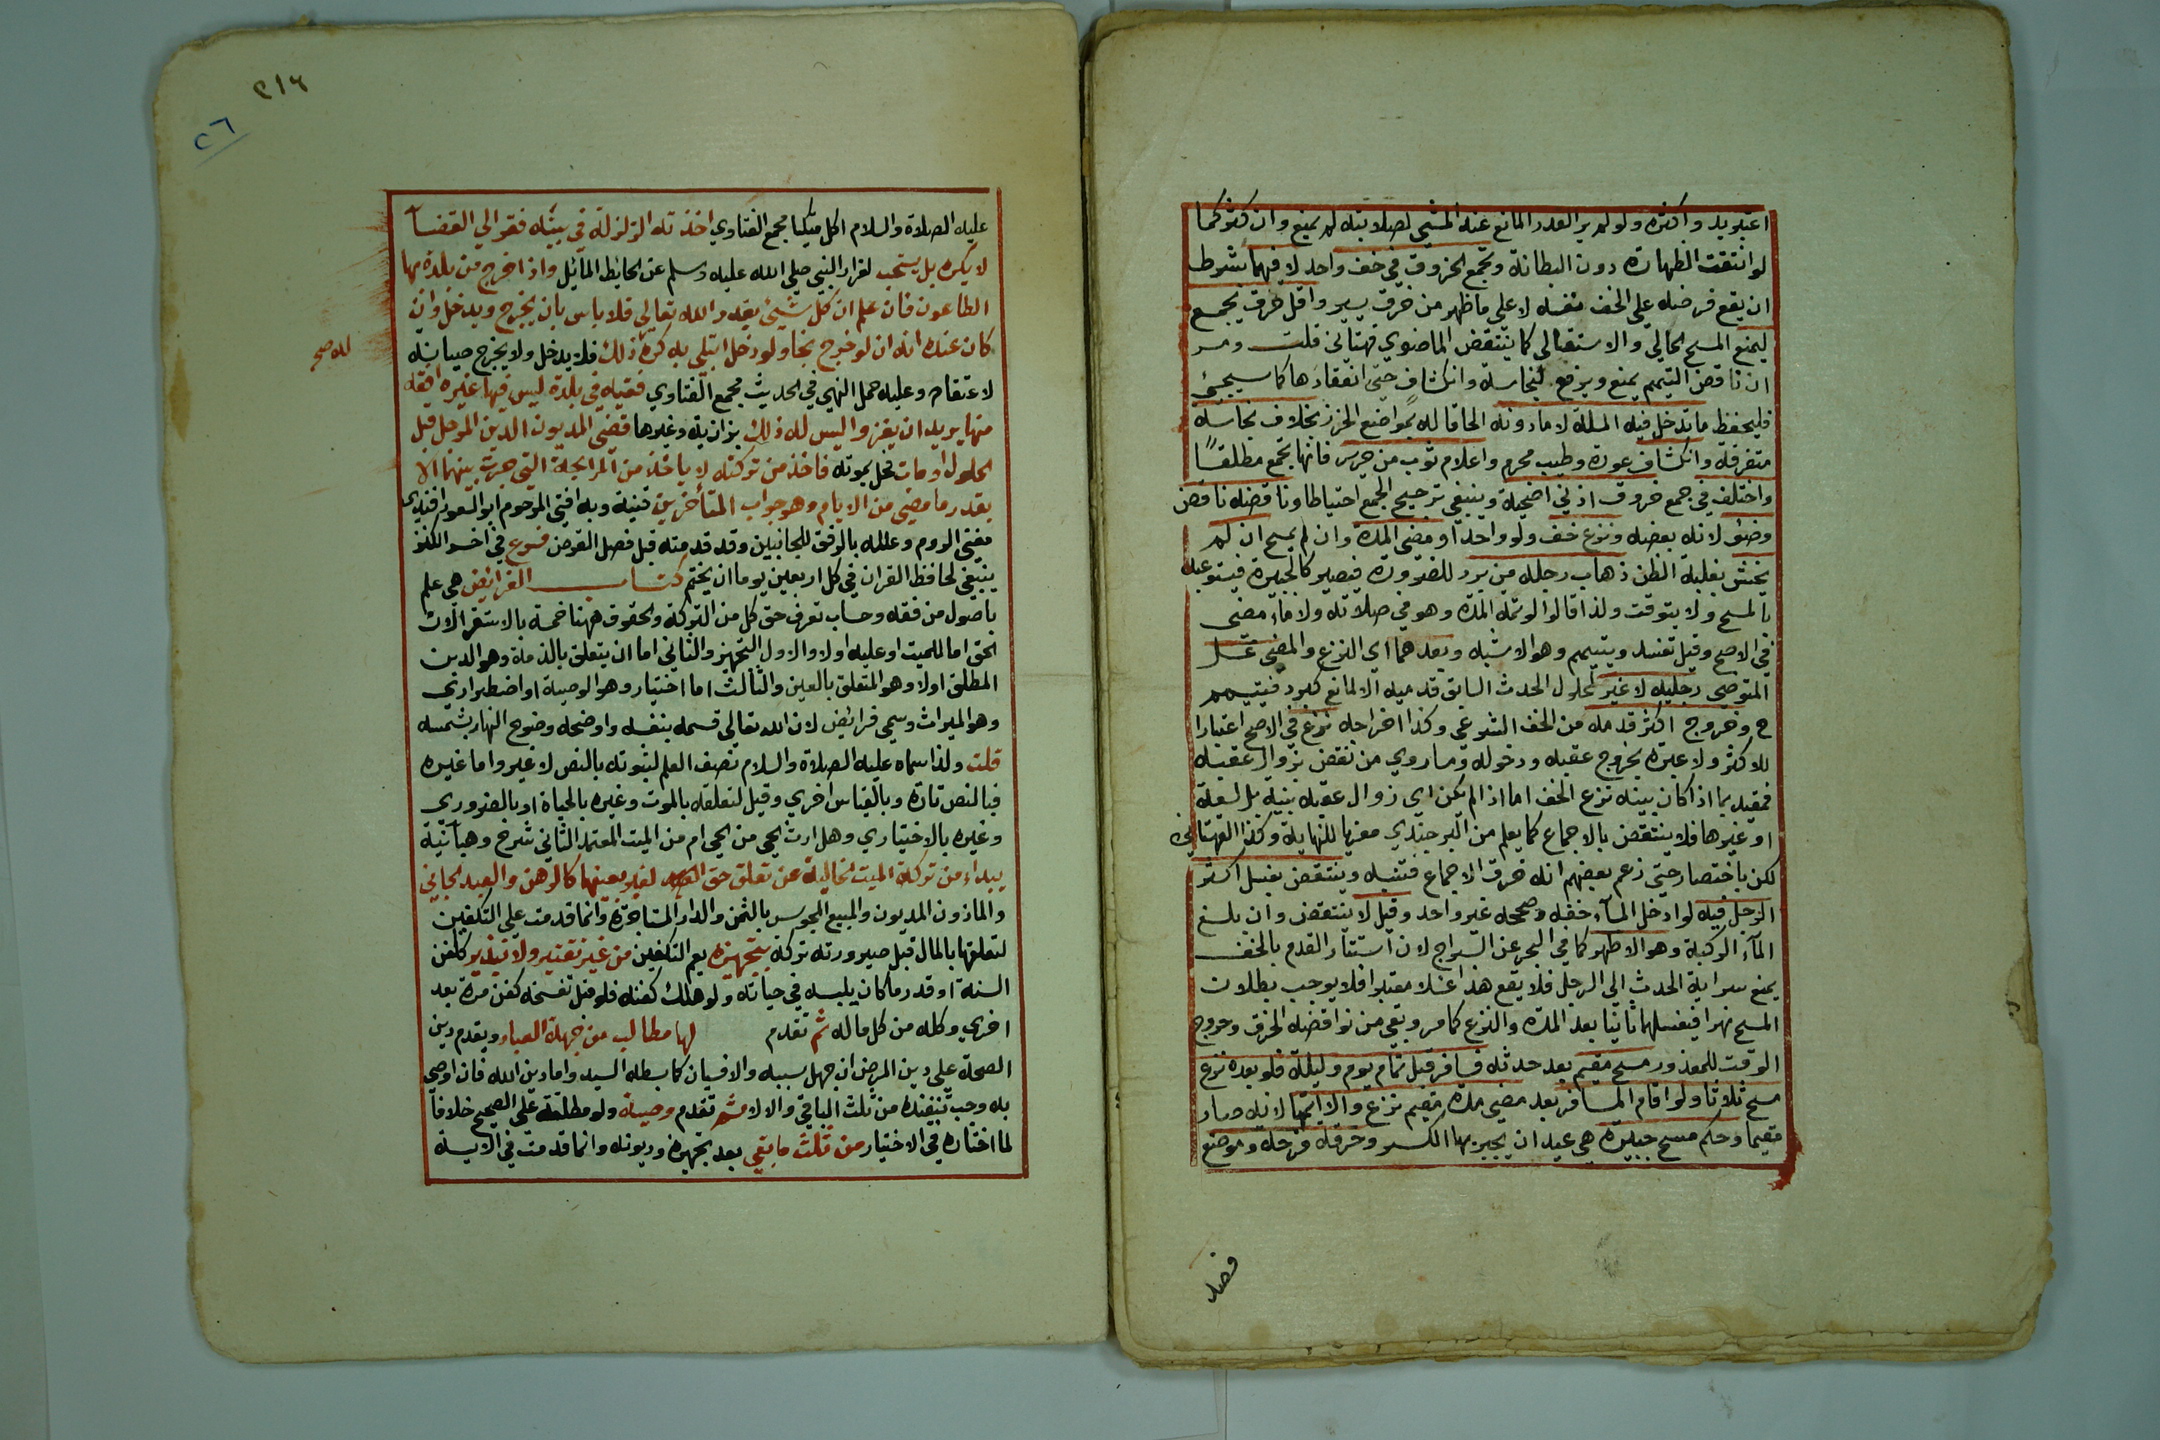 اعتبر بد واكثره ولو لم ير القدر المانع عند المشي لصلابته لم يمنع وان كثر كما
لو انتقت الظهارة دون البطانة وتجمع الخروق في خف واحد لا فيهما بشرط
ان يقع فرضه على الخف نفسه لا على ما ظهر من خرق يسير واقل خرق يجمع
ليمنع المسح الحالي والاستقبالي كما ينتقض الماضوي قهستاني قلت ومر
ان ناقض التيمم يمنع ويرفع لنجاسة وانكشاف حتى انعقادها كما سيجيئ
فليحفظ ما تدخل فيه المسلة لا ما دونه الحاقا له بمواضع الخرز بخلاف نجاسة
متفرقة وانكشاف عورة وطيب محرم واعلام ثوب من حرير فانها تجمع مطلقا
واختلف في جمع خروق اذني اضحية وينبغي ترجيح الجمع احتياطا وناقضه ناقض
وضوء لانه بعضه ونزع خف ولو واحدا ومضي المدة وان لم يمسح ان لم
يخش بغلبة الظن ذهاب رجله من برد للضرورة فيصير كالجبيرة فيستوعبه
بالمسح ولا يتوقت ولذا قالوا لو تمت المدة وهو في صلاته ولا ماء مضى
في الاصح وقيل تفسد ويتيمم وهو الاشبه وبعدهما اي النزع والمضي غسل
المتوضي رجليه لا غير لحلول الحدث السابق قدميه الا لمانع كبرد فيتيمم
ح وخروج اكثر قدمه من الخف الشرعي وكذا اخراجه نزع في الاصح اعتبارا
للاكثر ولا عبرة بخروج عقبه ودخوله وما روي من نقض بزوال عقبه
فمقيد بما اذا كان بنية نزع الخف اما اذا لم يكن اي زوال عقبه بنية بل لسعة
او غيرها فلا ينتقض بالاجماع كما يعلم من البرجندي معزيا للنهاية وكذا القهستاني
لكن باختصار حتى زعم بعضهم انه خرق الاجماع فتنبه وينتقض بغسل اكثر
الرجل فيه لو ادخل المآء خفه وصححه غير واحد وقيل لا ينتقض وان بلغ
المآء الركبة وهو الاظهر كما في البحر عن السراج لان استتار القدم بالخف
يمنع سراية الحدث الى الرجل فلا يقع هذا غسلا معتبرا فلا يوجب بطلان
المسح نهر فيغسلهما ثانيا بعد المدة والنزع كما مر وبقي من نواقضه الخرق وخروج
الوقت للمعذور مسح مقيم بعد حدثه فسافر قبل تمام يوم وليلة فلو بعده نزع
مسح ثلاثا ولو اقام المسافر بعد مضي مدة مقيم نزع والا اتمها لانه صار
مقيما وحكم مسح جبيرة هي عيدان يجبر بها الكسر وخرقة قرحة وموضع
فصد
٣١٦
٢٦
عليه الصلاة والسلام اكل متكيا مجمع الفتاوي اخذته الزلزلة في بيته ففر الى الفضآ
لا يكره بل يستحب لفرار النبي صلى الله عليه وسلم عن الحايط المآئل واذا خرج من بلدة بها
الطاعون فان علم ان كل شيئ بقدر الله تعالى فلا باس بان يخرج ويدخل وان
كان عنده انه ان لو خرج نجا ولو دخل ابتلي به كره ذلك فلا يدخل ولا يخرج صيانة
لاعتقاده وعليه حمل النهي في الحديث مجمع الفتاوي فقيه في بلدة ليس فيها غيره افقه
منها يريد ان يغزو اليس له ذلك بزازية وغيرها قضى المديون الدين المؤجل قبل
الحلول او مات فحل بموته فاخذ من تركته لا ياخذ من المرابحة التي جرت بينهما الا
بقدر ما مضى من الايام وهو جواب المتاخرين قنية وبه افتى المرحوم ابو السعود افندي
مفتي الروم وعلله بالرفق للجانبين وقد قدمته قبل فصل القرض فروع في اخر الكنز
ينبغي لحافظ القران في كل اربعين يوما ان يختم كتاب الفرائض هي علم
باصول من فقه وحساب تعرف حق كل من التركة والحقوق ههنا خمسة بالاستقرا لان
الحق اما للميت او عليه او لا ولا الاول التجهيز والثاني اما ان يتعلق بالذمة وهو الدين
المطلق اولا وهو المتعلق بالعين والثالث اما اختيار وهو الوصية او اضطراري
وهو الميراث وسمي فرائض لان الله تعالى قسمه بنفسه واوضحه وضوح النهار بشمسه
قلت ولذا سماه عليه الصلاة والسلام نصف العلم لثبوته بالنص لا غير واما غيره
فبالنص تارة وبالقياس اخري وقيل لتعلقه بالموت وغيره بالحياة او بالضروري
وغيره بالاختياري وهل ارث الحي من الحي ام من الميت المعتمد الثاني شرح وهبآنية
يبداء من تركة الميت الخالية عن تعلق حق الغير بعينها كالرهن والعبد الجاني
والماذون المديون والمبيع المحبوس بالثمن والدار المستاجرة وانما قدمت على التكفين
لتعلقها بالمال قبل صيرورته تركة بتجهيزه يعم التكفين من غير تقتير ولا تبذير ككفن
السنة او قدر ما كان يلبسه في حياته ولو هلك كفنه فلو قبل تفسخه كفن مرة بعد
اخري وكله من كل ماله ثم تقدم لها مطالب من جهة العباد ويقدم دين
الصحة على دين المرض ان جهل سببه والا فسيان كما بسطه السيد واما دين الله فان اوصى
به وجب تنفيذه من ثلث الباقي والا لا ثم تقدم وصيته ولو مطلقة على الصحيح خلافا
لما اختاره في الاختيار من ثلث ما بقي بعد تجهيزه وديونه وانما قدمت في الاية
له صح